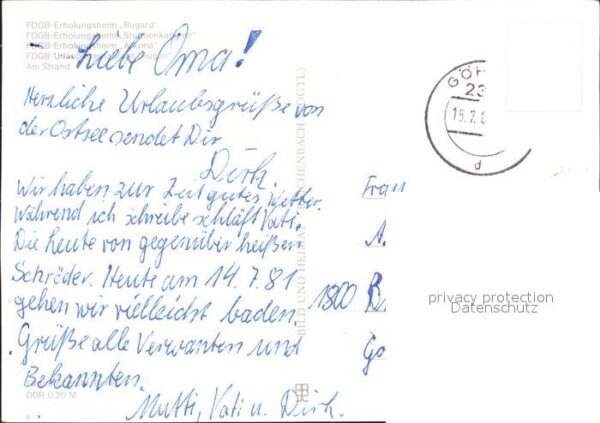 FDGB-Erholungsheim „Rugard"
FDGB-Erholungsheim „Stubbenkammer"
FDGB-Erholungsheim „Arkona"
Am Strand
Liebe Oma!
Herzliche Urlaubsgrüße von
der Ostsee sendet Dir
Dirk.
Wir haben zur Zeit gutes Wetter.
Während ich schreibe schläft Vati.
Die heute von gegenüber heißen
Schröder. Heute am 14.7.81
gehen wir vielleicht baden.
Grüße alle Verwanten und
Bekannten.
Mutti, Vati u. Dirk.
DDR 0,20 M
BILD UND HEIMAT REICHENBACH (VOGTL)
GÖH
23
15.7.8
d
Frau
A.
1800 B
Go
privacy protection
Datenschutz